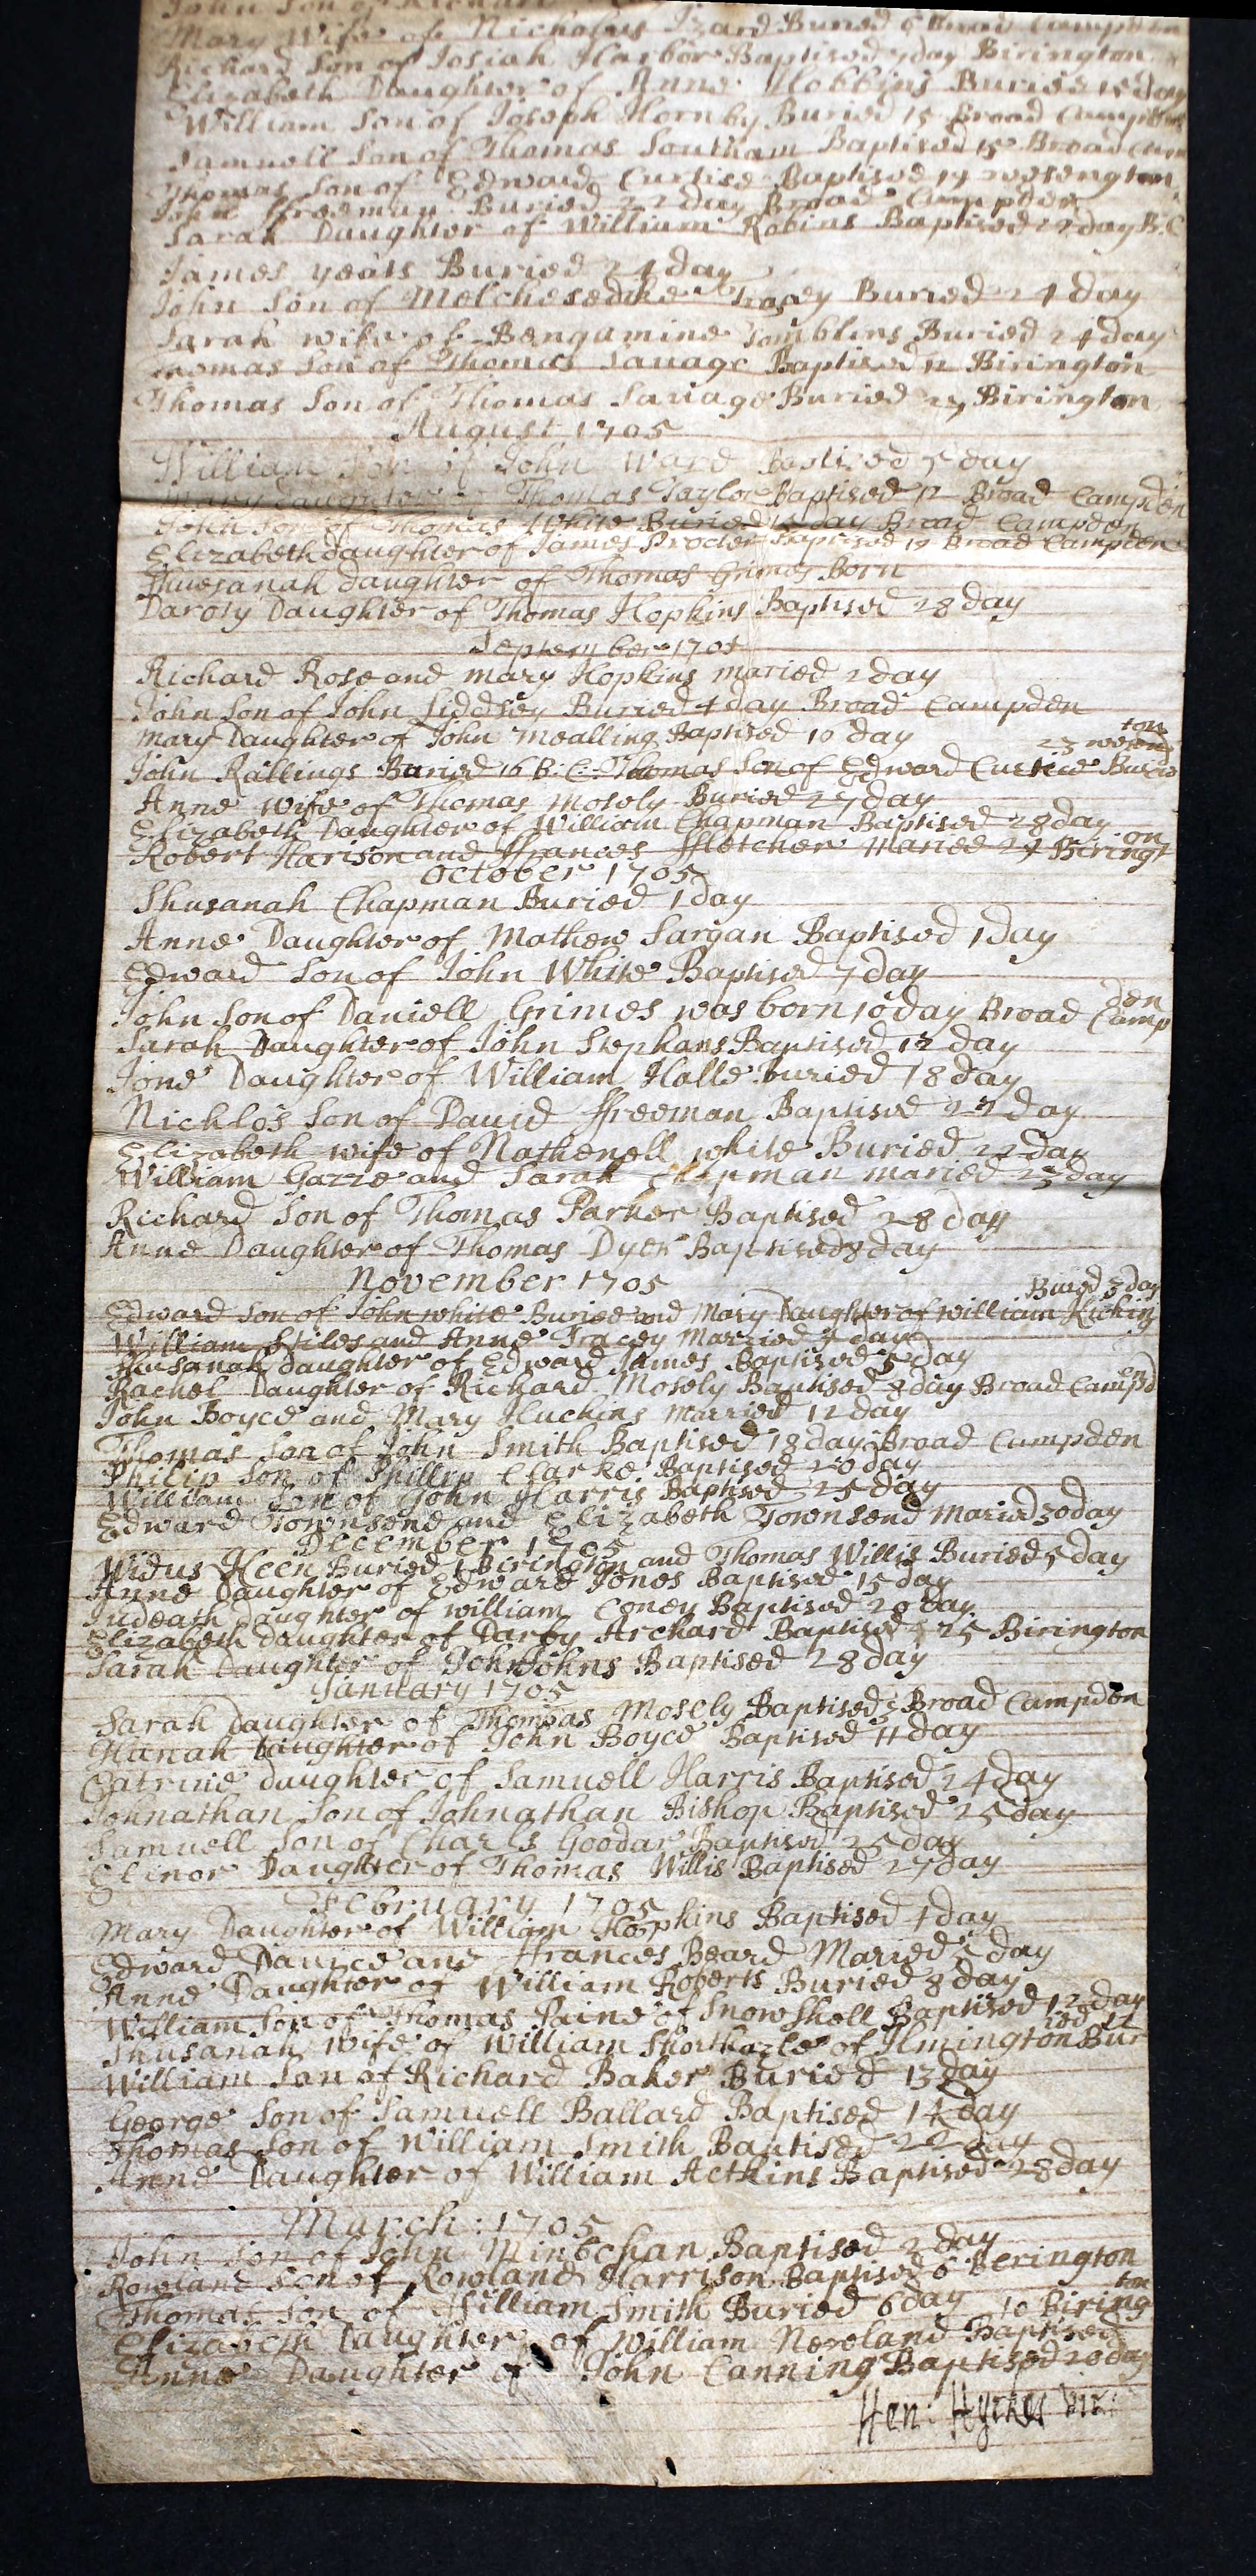 John Son of Richard
Mary Wife of Nicholas Izard Buried 6 Broad Campden
Richard Son of Josiah Harbor Baptised 7 day Birington
Elizabeth Daughter of Anne Hobbins Buried 12 day
William Son of Joseph Hornby Buried 15 Broad Campden
Samuell Son of Thomas Southam Baptised 15 Broad Cam
Thomas Son of Edward Curtise Baptised 19 wesengton
John ffreeman Buried 22 day Broad Campden
Sarah Daughter of William Robins Baptised 22 day B:C
James yeats Buried 24 day
John Son of Melchesedike Tracey Buried 24 day
Sarah wife of Bengamine Tomblins Buried 24 day
Thomas Son of Thomas Sauage Baptised 12 Birington
Thomas Son of Thomas Sauage Buried 27 Birington
August 1705
William Son of John Ward Baptised 5 day
Mary Daughter of Thomas Taylor Baptised 12 Broad Campden
John Son of Thomas White Buried day Broad Campden
Elizabeth daughter of James Procter Baptised 19 Broad Campden
Shuesanah Daughter of Thomas Grimes Born
Daroty Daughter of Thomas Hopkins Baptised 28 day
September 1705
Richard Rose and mary Hopkins maried 2 day
John Son of John Liddsey Buried 4 day Broad Campden
mary Daughter of John mealling Baptised 10 day
ton
23 wesen
John Rallings Buried 16 B:C: Thomas Son of Edward Curtice Burie
Anne wife of Thomas mosely Buried 27 day
Elizabeth Daughter of William Chapman Baptised 28 day
Robert Harison and ffrances ffletcher Maried 24 Biringt
on
october 1705
Shusanah Chapman Buried 1 day
Anne Daughter of Mathew Sargan Baptised 1 day
Edward Son of John White Baptised 7 day
John Son of Daniell Grimes was born 10 day Broad Camp
den
Sarah Daughter of John Stephans Baptised 12 day
Jone Daughter of William Halle buried 18 day
Nichlos Son of Dauid ffreeman Baptised 22 day
Elizabeth wife of Nathenell white Buried 22 day
William Gazze and Sarah Chapman maried 23 day
Richard Son of Thomas Parker Baptised 28 day
Anne Daughter of Thomas Dyer Baptised 8 day
November 1705
Buried 3 day
Edward Son of John white Buried and Mary Daughter of william Hichins
William Stiles and Anne Tracey Married 4 day
Shusanah daughter of Edward James Baptised 5 day
Rachel Daughter of Richard Mosely Baptised 8 day Broad Campd
en
John Boyce and Mary Huchins Married 12 day
Thomas Son of John Smith Baptised 18 day Broad Campden
Philip Son of Phillip Clarke Baptised 20 day
William Son of John Harris Baptised 25 day
Edward Townsend and Elizabeth Townsend Maried 30 day
December 1705
Widus Keen Buried 1 Birington and Thomas Willis Buried 5 day
Anne Daughter of Edward Jones Baptised 15 day
Judeath daughter of william Coney Baptised 20 day
Elizabeth daughter of Darby Archard Baptised 25 Birington
Sarah Daughter of John Johns Baptised 28 day
January 1705
Sarah Daughter of Thomas Mosely Baptised 3 Broad Campden
Hanah Daughter of John Boyce Baptised 11 day
Catrine daughter of Samuell Harris Baptised 24 day
Johnathan Son of Johnathan Bishop Baptised 25 day
Samuell Son of Charls Goodar Baptised 25 day
Elinor Daughter of Thomas Willis Baptised 27 day
February 1705
Mary Daughter of William Hopkins Baptised 4 day
Edward Dauice and ffrances Beard Maried 5 day
Anne Daughter of William Roberts Buried 8 day
William Son of Thomas Paine of Snowsholl Baptised 12 day
ied 12
Shusanah wife of William Shorthazle of Ilmington Bur
William Son of Richard Baker Buried 13 day
George Son of Samuell Ballard Baptised 14 day
Thomas Son of William Smith Baptised 22 day
Anne Daughter of William Actkins Baptised 28 day
March: 1705
John Son of John Minechan Baptised 2 day
Rowland Son of Rowland Harrison Baptised 6 Berington
Thomas Son of William Smith Buried 6 day
ton
10 Biring
Elizabeth Daughter of William Neveland Baptised
Anne Daughter of John Canning Baptised 20 day
Hen: Hyckes vic: